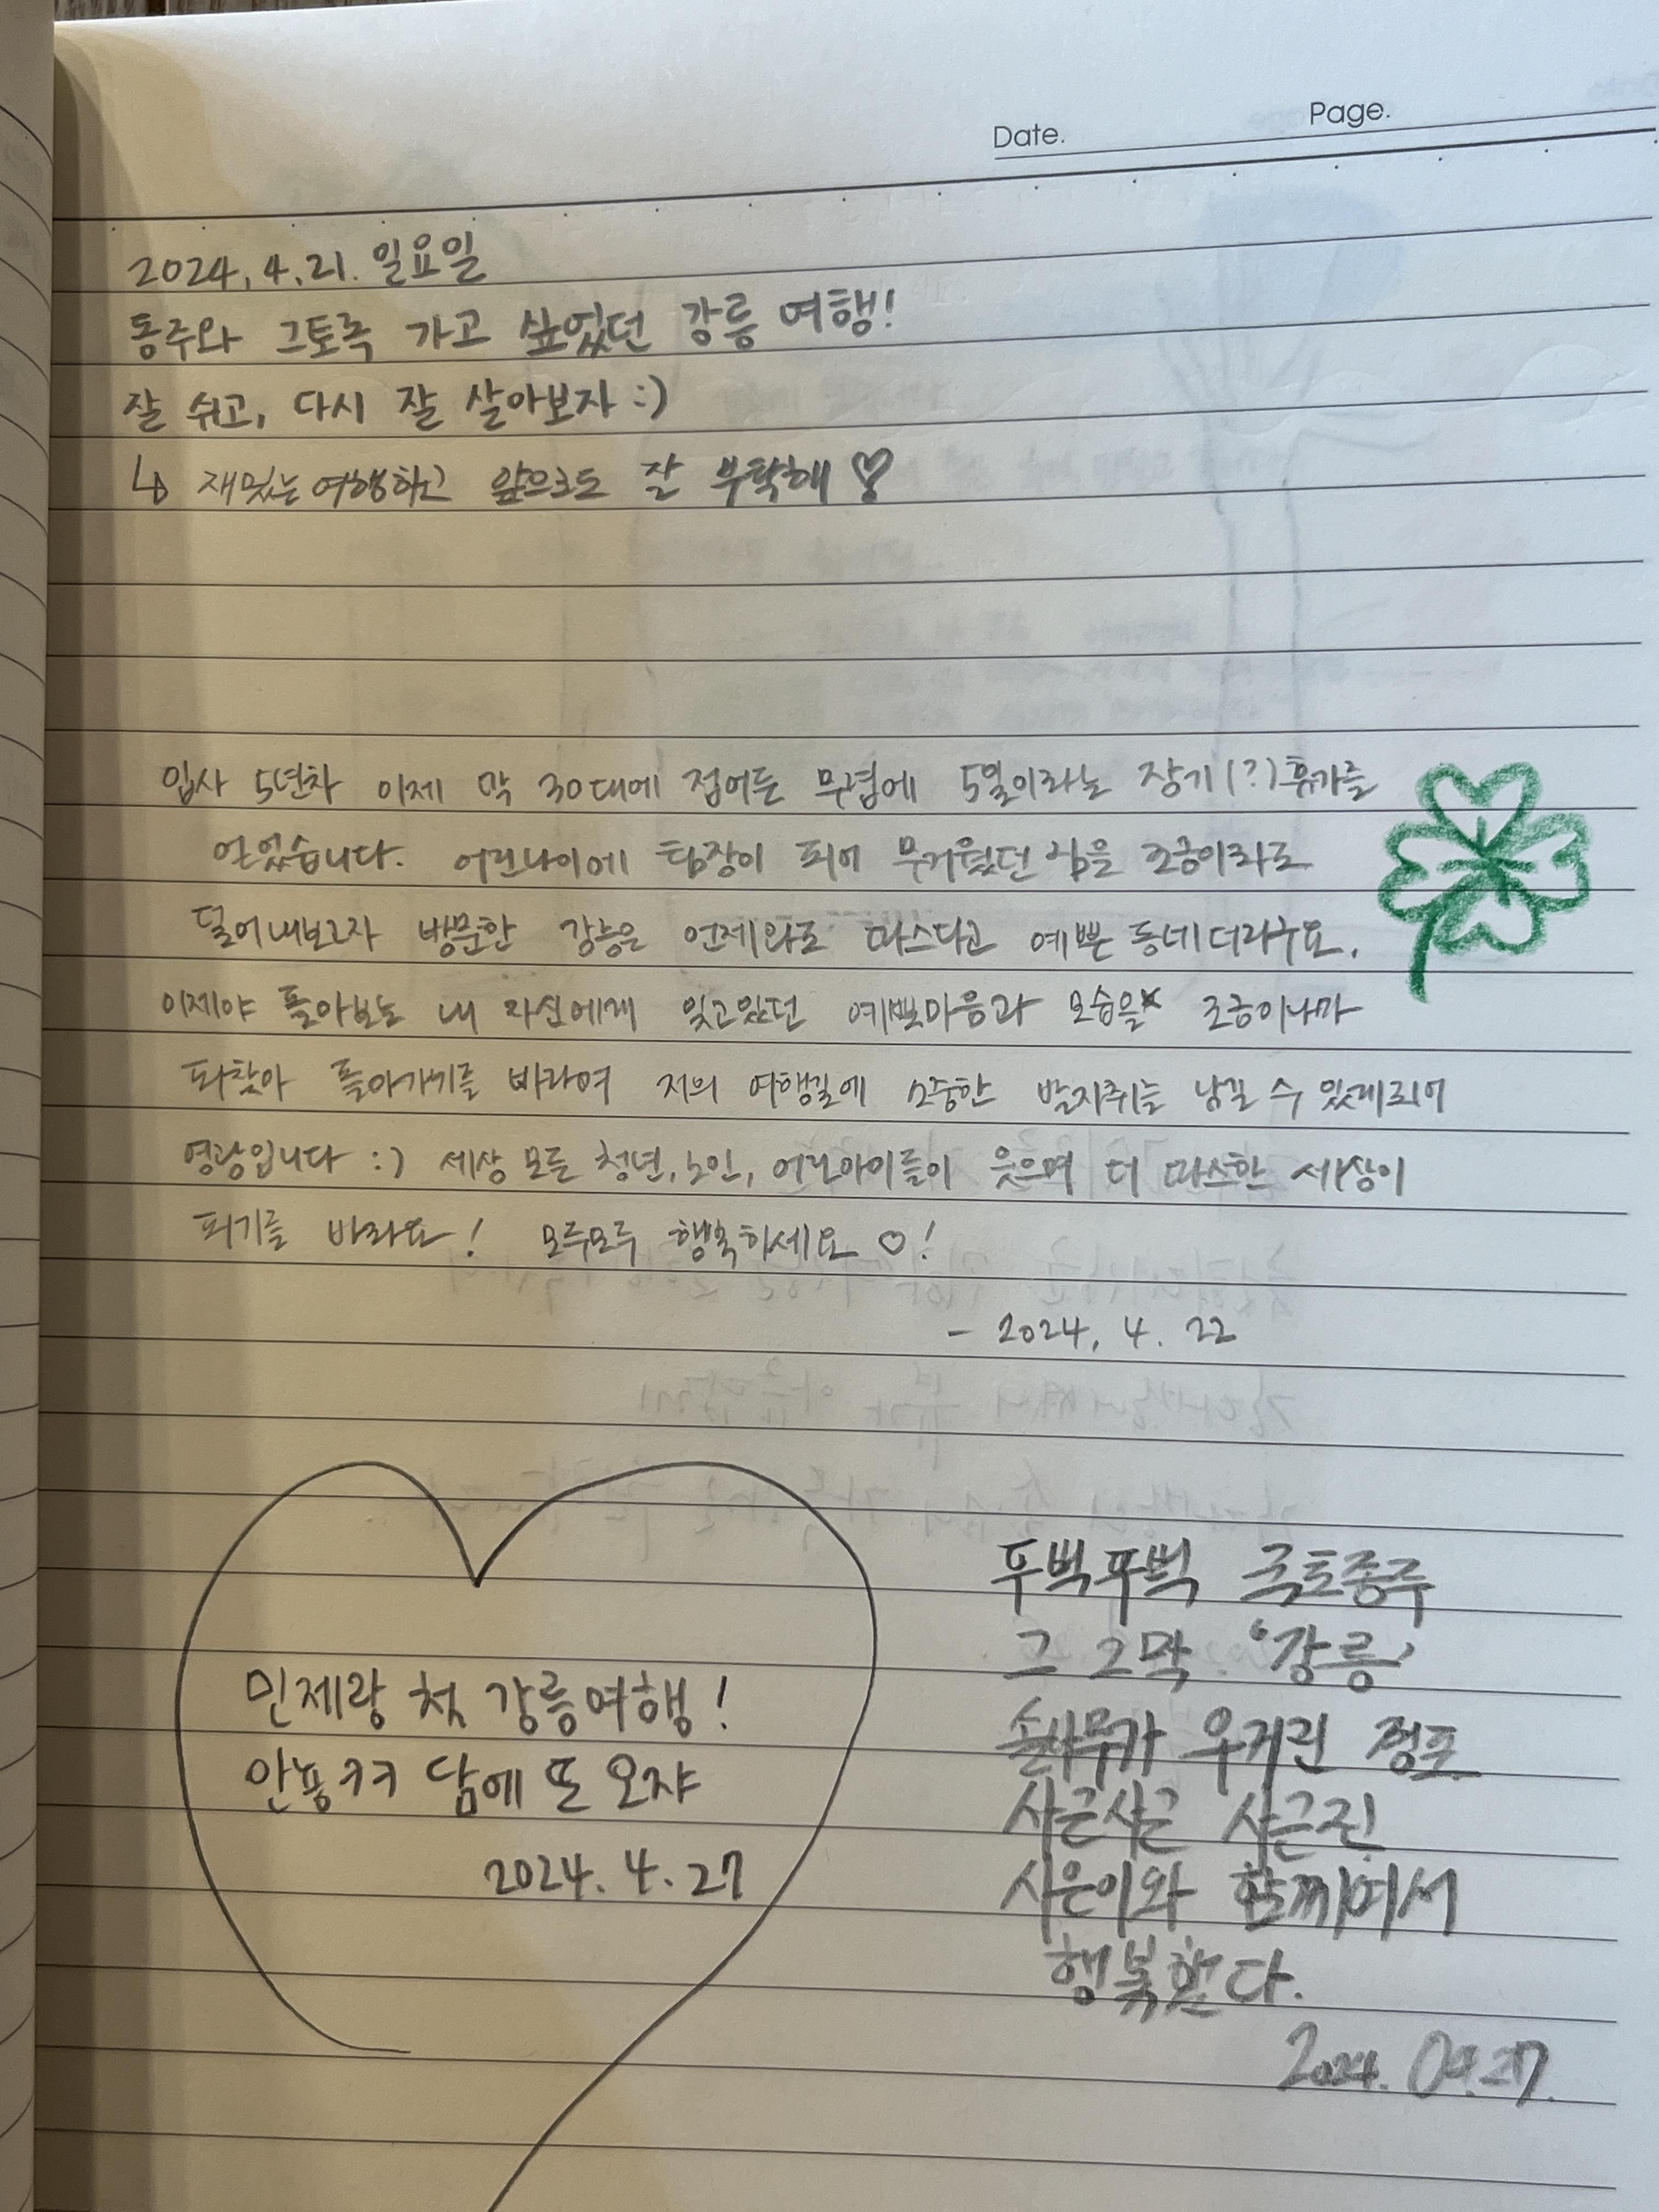 Date.
Page.
2024. 4. 21. 일요일
동주와 그토록 가고 싶었던 강릉 여행!
잘 쉬고, 다시 잘 살아보자 :)
↳ 재밌는 여행하고 앞으로도 잘 부탁해 ♡
입사 5년차 이제 막 30대에 접어든 무렵에 5일이라는 장기(?)휴가를
얻었습니다. 어린나이에 팀장이 되어 무거웠던 짐을 조금이라도
덜어내보고자 방문한 강릉은 언제와도 따스하고 예쁜 동네더라구요.
이제야 돌아보는 내 자신에게 잊고있던 예쁜마음과 모습을 조금이나마
되찾아 돌아가기를 바라며 저의 여행길에 소중한 발자취를 남길 수 있게되어
영광입니다 :) 세상 모든 청년, 노인, 어린아이들이 웃으며 더 따스한 세상이
되기를 바라요! 모두모두 행복하세요 ♡!
- 2024. 4. 22
민제랑 첫 강릉여행!
안뇽ㅋㅋ 담에 또 오쟈
2024. 4. 27
뚜벅뚜벅 국토종주
그 2막 '강릉'
솔나무가 우거진 정포
사근사근 사근진
시은이와 함께여서
행복했다.
2024. 04. 27.